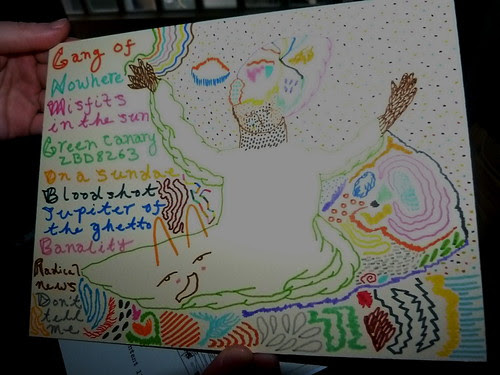 Gang of
Nowhere
Misfits
in the sun
Green Canary
ZBD8263
On a Sundae
Bloodshot
Jupiter of
the ghetto
Banality
Radical
news
Don't
tell
me